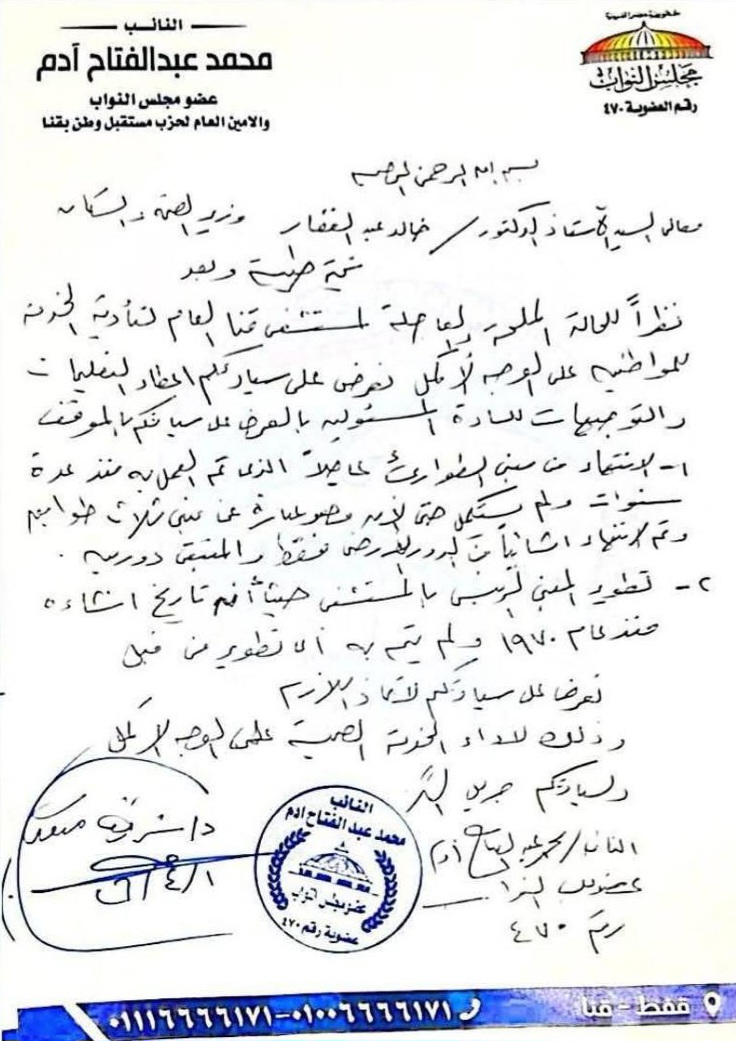 النائب
محمد عبدالفتاح آدم
عضو مجلس النواب
والامين العام لحزب مستقبل وطن بقنا
جمهورية مصر العربية
مجلس النواب
رقم العضوية ٤٧٠
بسم الله الرحمن الرحيم
معالى السيد الأستاذ الدكتور / خالد عبد الغفار وزير الصحة والسكان
تحية طيبة وبعد
نظراً للحالة الملحة والعاجلة لمستشفى قنا العام لتأدية الخدمة
للمواطنين على الوجه الأكمل نعرض على سيادتكم اعطاء التعليمات
والتوجيهات للسادة المسئولين بالعرض على سيادتكم بالموقف
١- الانتهاء من مبنى الطوارئ الذى تم العمل به منذ عدة
سنوات ولم يستكمل حتى الآن وهو عبارة عن مبنى ثلاث طوابق
وتم الانتهاء انشائياً من الدور الأرضى فقط والمتبقى دورين .
٢- تطوير المبنى الرئيسى بالمستشفى حيث أن تاريخ انشاءه
منذ عام ١٩٧٠ ولم يتم به أى تطوير من قبل
نعرض على سيادتكم لاتخاذ اللازم
وذلك لاداء الخدمة الصحية على الوجه الاكمل
ولسيادتكم جزيل الشكر
النائب / محمد عبد الفتاح آدم
عضو مجلس النواب
رقم ٤٧٠
النائب
محمد عبد الفتاح آدم
عضو مجلس النواب
عضوية رقم ٤٧٠
قفط - قنا
٠١١١٦٦٦٦١٧١-٠١٠٠٦٦٦٦١٧١